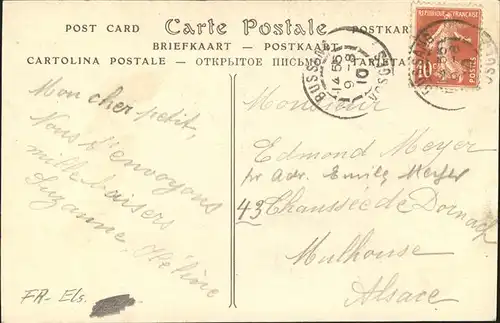 POST CARD Carte Postale POSTKARTE
BRIEFKAART — POSTKAART
CARTOLINA POSTALE — ОТКРЫТОЕ ПИСЬМО
Mon cher petit,
Nous t'envoyons
mille baisers
Suzanne, Hélène
FR-Els.
BUSSANG
VOSGES
14 55
9 - 8
10
10c
POSTES
Monsieur
Edmond Meyer
pr adr. Emile Meyer
43 Chaussée de Dornach
Mulhouse
Alsace